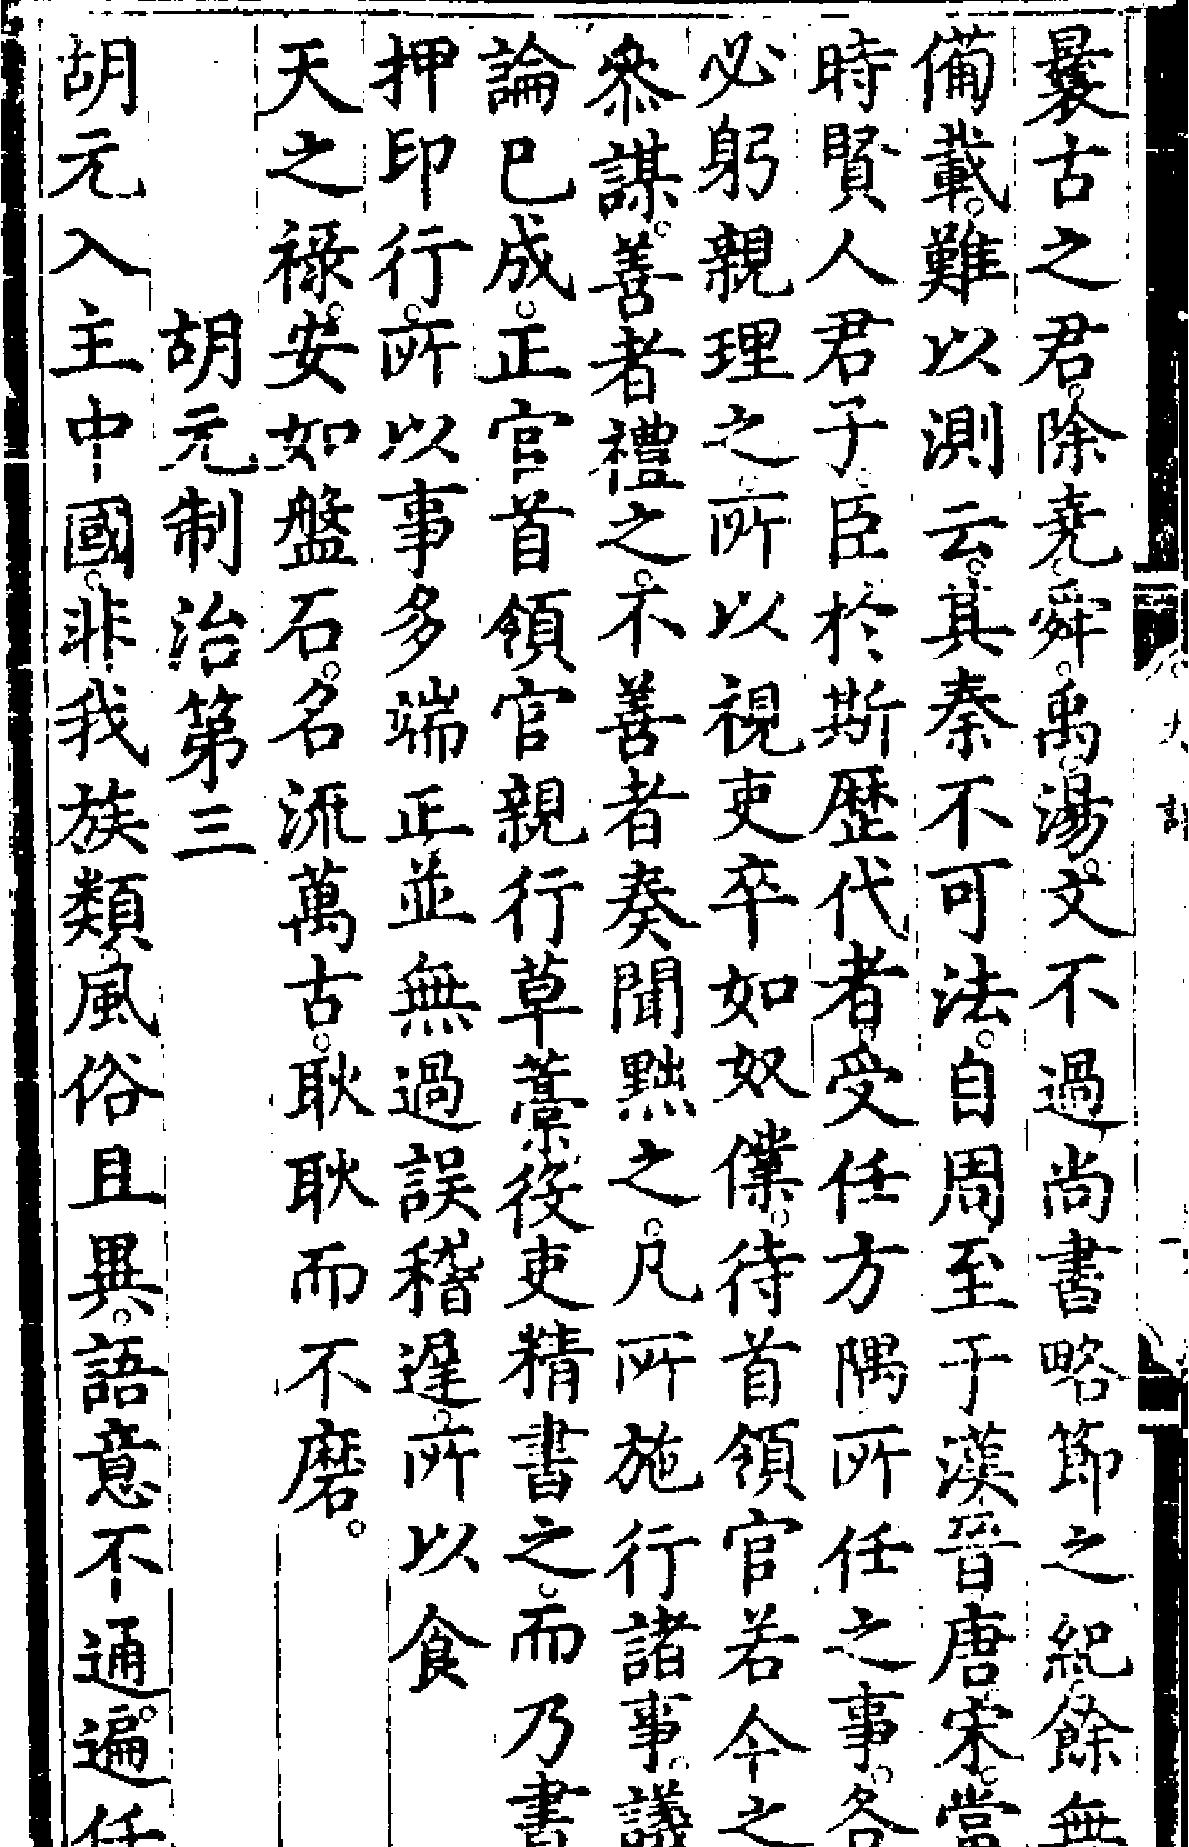 曩古之君。除堯舜。禹湯。文不過尚書略節之紀餘無
備載。難以測云。其秦不可法。自周至于漢晉唐宋。當
時賢人君子臣於斯歷代者受任方隅所任之事。各
必躬親理之。所以視吏卒如奴僕。待首領官若今之
叅謀。善者禮之。不善者奏聞黜之。凡所施行諸事。議
論已成。正官首領官親行草藁役吏精書之。而乃書
押印行。所以事多端正並無過誤稽遲。所以食
天之祿。安如盤石。名流萬古。耿耿而不磨。
胡元制治第三
胡元入主中國。非我族類風俗且異。語意不通。遍任